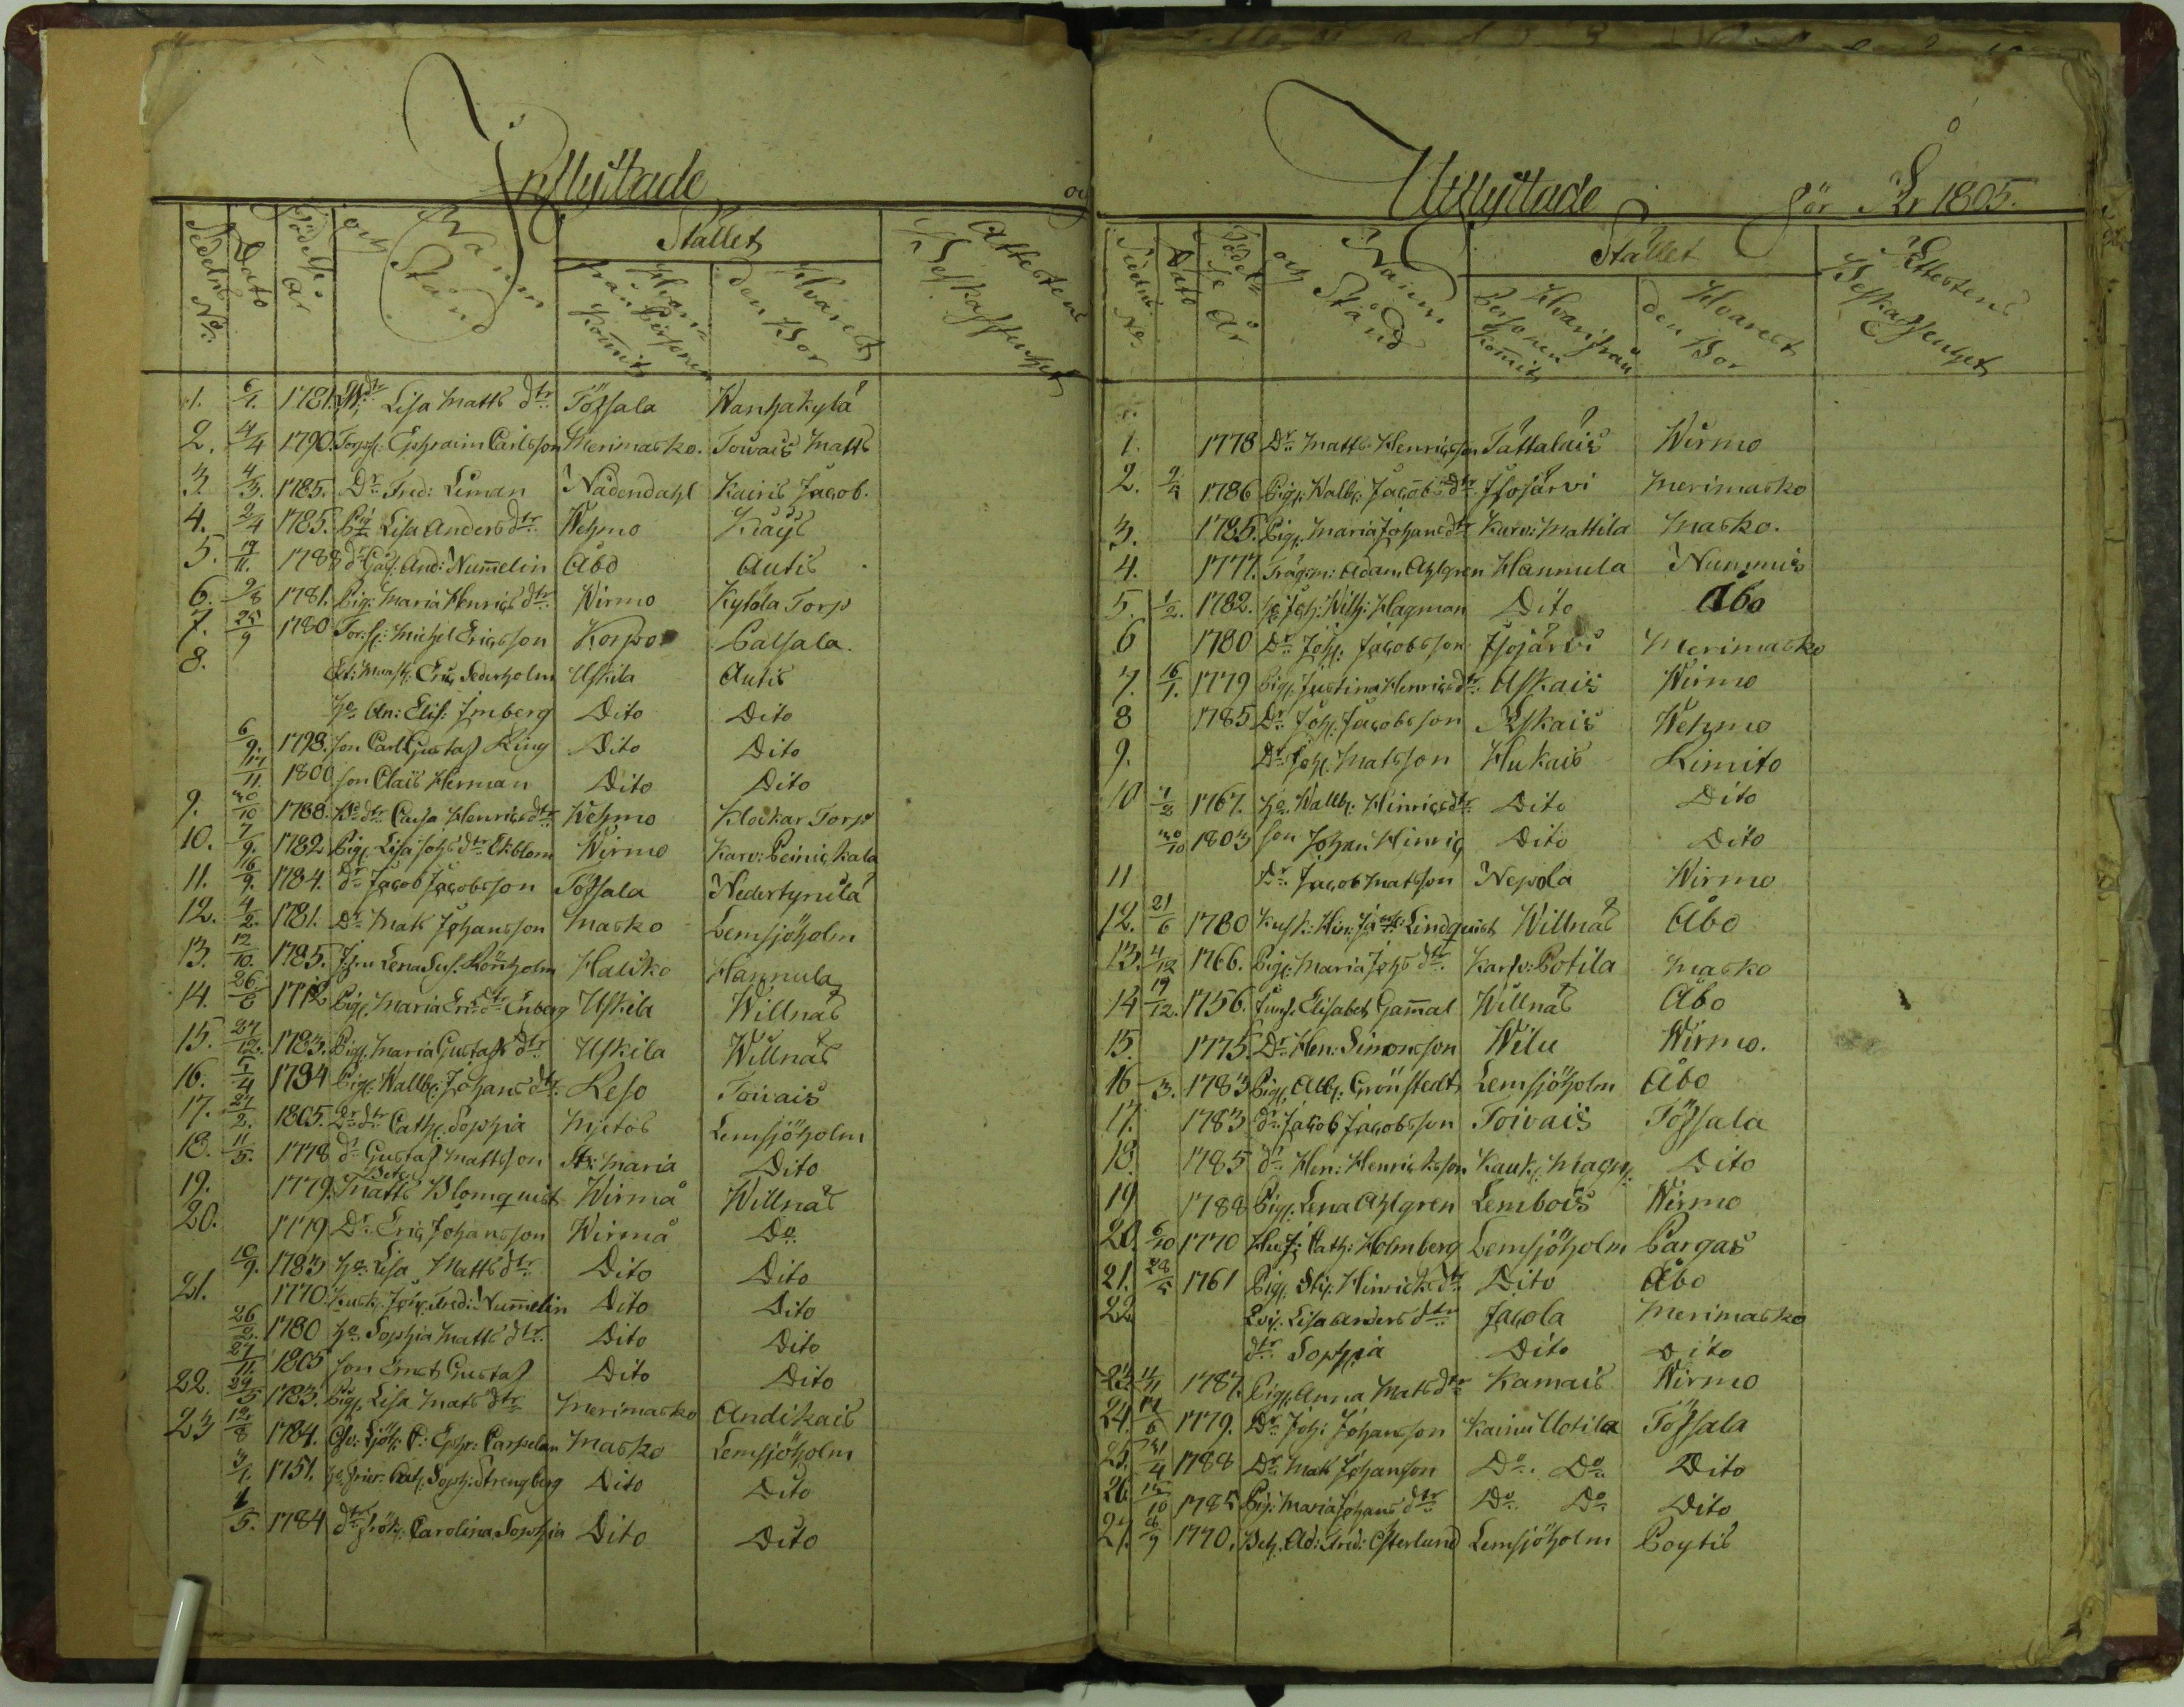 Inflyttade och
Sedelns No. Dato Födelse år Namn och Stånd Stället Hvarifrån Personen kommit Hvarest den Bor Attestens Beskaffenhet
1. 6/1. 1781. Lisa Matts dtr. Töfsala Wanhakylä
2. 4/4 1790. Ephraim Carlsson Merimasko. Towais Matts
3. 4/3. 1785. Dr. Fred: Liman Nådendahl Kairis Jacob.
4. 2/4 1785. Pig. Lisa Anders dtr. Wehmo Kräys
5. 19/11. 1788 And: Nummelin Åbo Autis
6. 9/8 1781. Pig: Maria Henrics dtr. Wirmo Kylöla Torp
7. 25/9 1780 Michel Ericsson Korpo Palsala.
8. Eric Sederholm Uskila Autis
An: Elis: Imberg Dito Dito
6/9. 1798. son Carl Gustaf King Dito Dito
14/11. 1800 son Clais Herman Dito Dito
9. 30/10 1788. Caisa Henrics dtr. Wehmo Klockar Torp
10. 7/9. 1782 Pig. Lisa Johs dtr Ekblom Wirmo Karv: Peinickala
11. 16/9. 1784. dr Jacob Jacobsson Töfsala Nederkynilä
12. 4/2. 1781. Dr. Mats Johansson Masko Lemsjöholm
13. 12/10. 1785. Lena Rönholm Hauko Hannula
14. 26/6 1772 Pig. Maria Eric dtr Enberg Uskila Willnäs
15. 27/12. 1783. Pig. Maria Gustafs dtr Uskila Willnäs
16. 5/4 1794 Pig. Wallb. Johans dtr. Reso Toivais
17. 27/2. 1805. Cath. Sophia Mietois Lemsjöholm
18. 11/5. 1778 dr Gustaf Mattsson St. Maria Dito
19. 1779. Bet. Matts Blomquist Wirmå Willnäs
20. 1779 Dr. Eric Johansson Wirmå Do.
10/9. 1783 ho. Lisa Matts dtr. Dito Dito
21. 1770. Kusk. Joh. Fred: Nummelin Dito Dito
26/2. 1780 ho. Sophia Matts dtr. Dito Dito
27/11. 1805 son Ernst Gustaf Dito Dito
22. 29/5 1783. Pig. Lisa Mats dtr Merimasko Andikais
23 12/8 1784. Carpelan Masko Lemsjöholm
3/1. 1751. Cath. Soph: Strengberg Dito Dito
1/5. 1784 dtr. Frök. Carolina Sophia Dito Dito
Utflyttade för År 1805.
Sedelns No. Dato Födelse År Namn och Stånd Stället Hvarifrån Personen kommit Hvarest den Bor Attestens Beskaffenhet
1. 1778 Dr. Matts Henricsson Tattalais Wirmo
2. 2/4 1786 Pig. Walb. Jacobs dtr. Isojärvi Merimasko
3. 1785. Pig. Maria Johans dtr Karv: Mattila Masko.
4. 1777. Trägm: Adam Ahlgren Hannula Nummis
5. 1/2. 1782. Wilh: Hagman Dito Åbo
6 1780 Dr. Joh. Jacobsson Isojärvi Merimasko
7. 16/1. 1779 Pig. Justina Henrics dtr. Askais Wirmo
8 1785 Dr. Joh. Jacobsson Askais Wehmo
9. Dr. Joh. Matsson Hukais Kimito
10 7/2 1767. ho. Wallb. Hinrics dtr. Dito Dito
30/10 1803 son Johan Hinric Dito Dito
11 Dr. Jacob Matsson Nepola Wirmo
12. 21/6 1780 Kusk. Hin: Lindquist Willnäs Åbo
13. 4/12 1766. Pig. Maria Johs dtr. Karv: Potila Masko
14 19/12. 1756. Jungf. Elisabet Gammal Willnäs Åbo
15. 1775. Dr. Hen: Simonsson Wilu Wirmo.
16 3. 1783 Pig. Alb. Grönstedt Lemsjöholm Åbo
17. 1783 dr. Jacob Jacobsson Toivais Töfsala
18. 1785 dr. Hen: Henricksson Kauk. Magn. Dito
19 1788 Pig. Lena Ahlgren Lembois Wirmo
20. 6/10 1770 Cath: Holmberg Lemsjöholm Pargas
21. 28/5 1761 Pig. Stii: Hinricks dtr Dito Åbo
22 Lisa Anders dtr Jacola Merimasko
dtr. Sophia Dito Dito
23. 11/11 1787. Pig. Anna Mats dtr Kamais Wirmo
24. 14/6 1779. Dr. Joh: Johansson Kainu Uotila Töfsala
25. 31/4 1788 Dr. Mats Johanson Do. Do. Dito
26. 15/10 1785 Pig. Maria Johans dtr Do. Do. Dito
27. 8/9 1770. Bet. Ad: Fred: Österlund Lemsjöholm Poytis